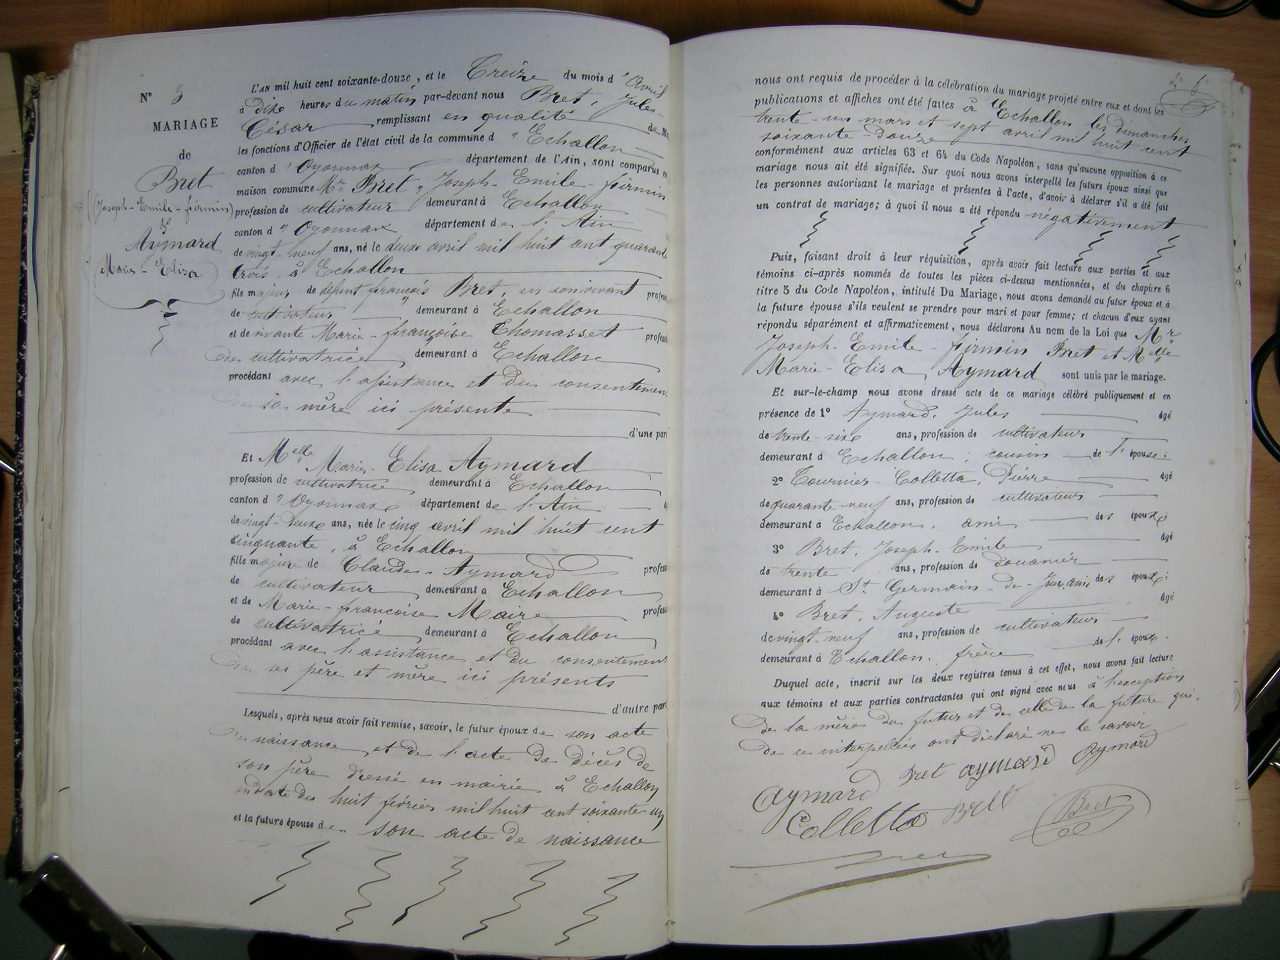 N° 3
MARIAGE
de
Bret
(Joseph-Emile-firmin)
&
Aymard
Marie-Elisa
L'AN mil huit cent soixante-douze, et le Treize du mois d'avril
à dix heures du matin par-devant nous Bret, Jules-
César remplissant en qualité de M
les fonctions d'Officier de l'état civil de la commune d'Echallon
canton d'Oyonnax département de l'Ain, sont comparus en
maison commune Mr Bret, Joseph-Emile-firmin
profession de cultivateur demeurant à Echallon
canton d'Oyonnax département de l'Ain
de vingt-neuf ans, né le deux avril mil huit cent quarante
trois à Echallon
fils majeur de défunt françois Bret, en son vivant profes
de cultivateur demeurant à Echallon
et de vivante Marie-françoise Thomasset profes
de cultivatrice demeurant à Echallon
procédant avec l'assistance et du consentement
de sa mère ici présente
d'une par
Et Melle Marie-Elisa Aymard
profession de cultivatrice demeurant à Echallon
canton d'Oyonnax département de l'Ain
de vingt-deux ans, née le cinq avril mil huit cent
cinquante, à Echallon
fille majeure de Claude-Aymard profes
de cultivateur demeurant à Echallon
et de Marie-françoise Maire profes
de cultivatrice demeurant à Echallon
procédant avec l'assistance et du consentement
de ses père et mère ici présents
d'autre par
Lesquels, après nous avoir fait remise, savoir, le futur époux de son acte
de naissance et de l'acte de décès de
son père dressé en mairie à Echallon
en date du huit février mil huit cent soixante un
et la future épouse de son acte de naissance
nous ont requis de procéder à la célébration du mariage projeté entre eux et dont les
publications et affiches ont été faites à Echallon les dimanches
trente-un mars et sept avril mil huit cent
soixante-douze
conformément aux articles 63 et 64 du Code Napoléon, sans qu'aucune opposition à ce
mariage nous ait été signifiée. Sur quoi nous avons interpellé les futurs époux ainsi que
les personnes autorisant le mariage et présentes à l'acte, d'avoir à déclarer s'il a été fait
un contrat de mariage; à quoi il nous a été répondu négativement
Puis, faisant droit à leur réquisition, après avoir fait lecture aux parties et aux
témoins ci-après nommés de toutes les pièces ci-dessus mentionnées, et du chapitre 6
titre 5 du Code Napoléon, intitulé Du Mariage, nous avons demandé au futur époux et à
la future épouse s'ils veulent se prendre pour mari et pour femme; et chacun d'eux ayant
répondu séparément et affirmativement, nous déclarons Au nom de la Loi que Mr
Joseph-Emile-firmin Bret et Melle
Marie-Elisa Aymard sont unis par le mariage.
Et sur-le-champ nous avons dressé acte de ce mariage célébré publiquement et en
présence de 1° Aymard, Jules âgé
de trente-six ans, profession de cultivateur
demeurant à Echallon, cousin de l'épouse;
2° Tournier-Colletta, Pierre âgé
de quarante-neuf ans, profession de cultivateur
demeurant à Echallon, ami des époux;
3° Bret, Joseph-Emile âgé
de trente ans, profession de douanier
demeurant à St Germain-de-Joux, ami des époux;
4° Bret, Auguste âgé
de vingt-neuf ans, profession de cultivateur
demeurant à Echallon, frère de l'époux.
Duquel acte, inscrit sur les deux registres tenus à cet effet, nous avons fait lecture
aux témoins et aux parties contractantes qui ont signé avec nous à l'exception
de la mère du futur et de celle de la future qui
de ce interpellées ont déclaré ne le savoir
Aymard Bret aymard Aymard
Colletta Bret Bret